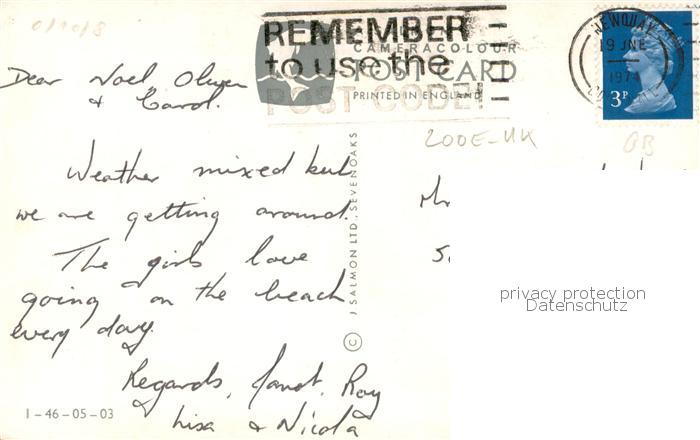 REMEMBER
to use the
POST CODE!
CAMERACOLOUR
POST CARD
PRINTED IN ENGLAND
NEWQUAY
19 JNE
1974
3P
0/10/8
200E-UK
GB
Dear Noel, Oliver
& Carol.
Weather mixed but
we are getting around.
The girls love
going on the beach
every day.
Regards, Janet, Roy
Lisa & Nicola
© J SALMON LTD., SEVENOAKS
1-46-05-03
privacy protection
Datenschutz